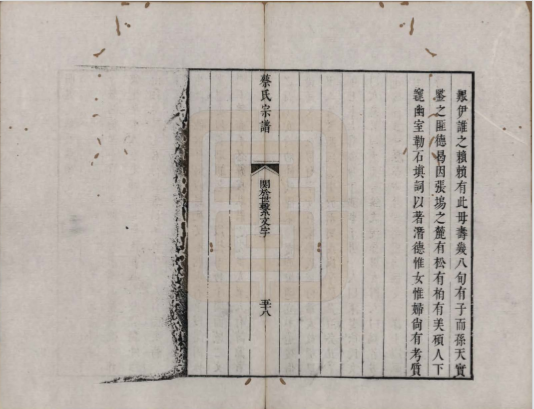 繄伊誰之賴賴有此母壽幾八旬有子而孫天實
鑒之匪德曷因張塢之麓有松有柏有美碩人下
窆幽室勒石填詞以著潛德惟女惟婦尙有考質
蔡氏宗譜
關於世系文字
五八